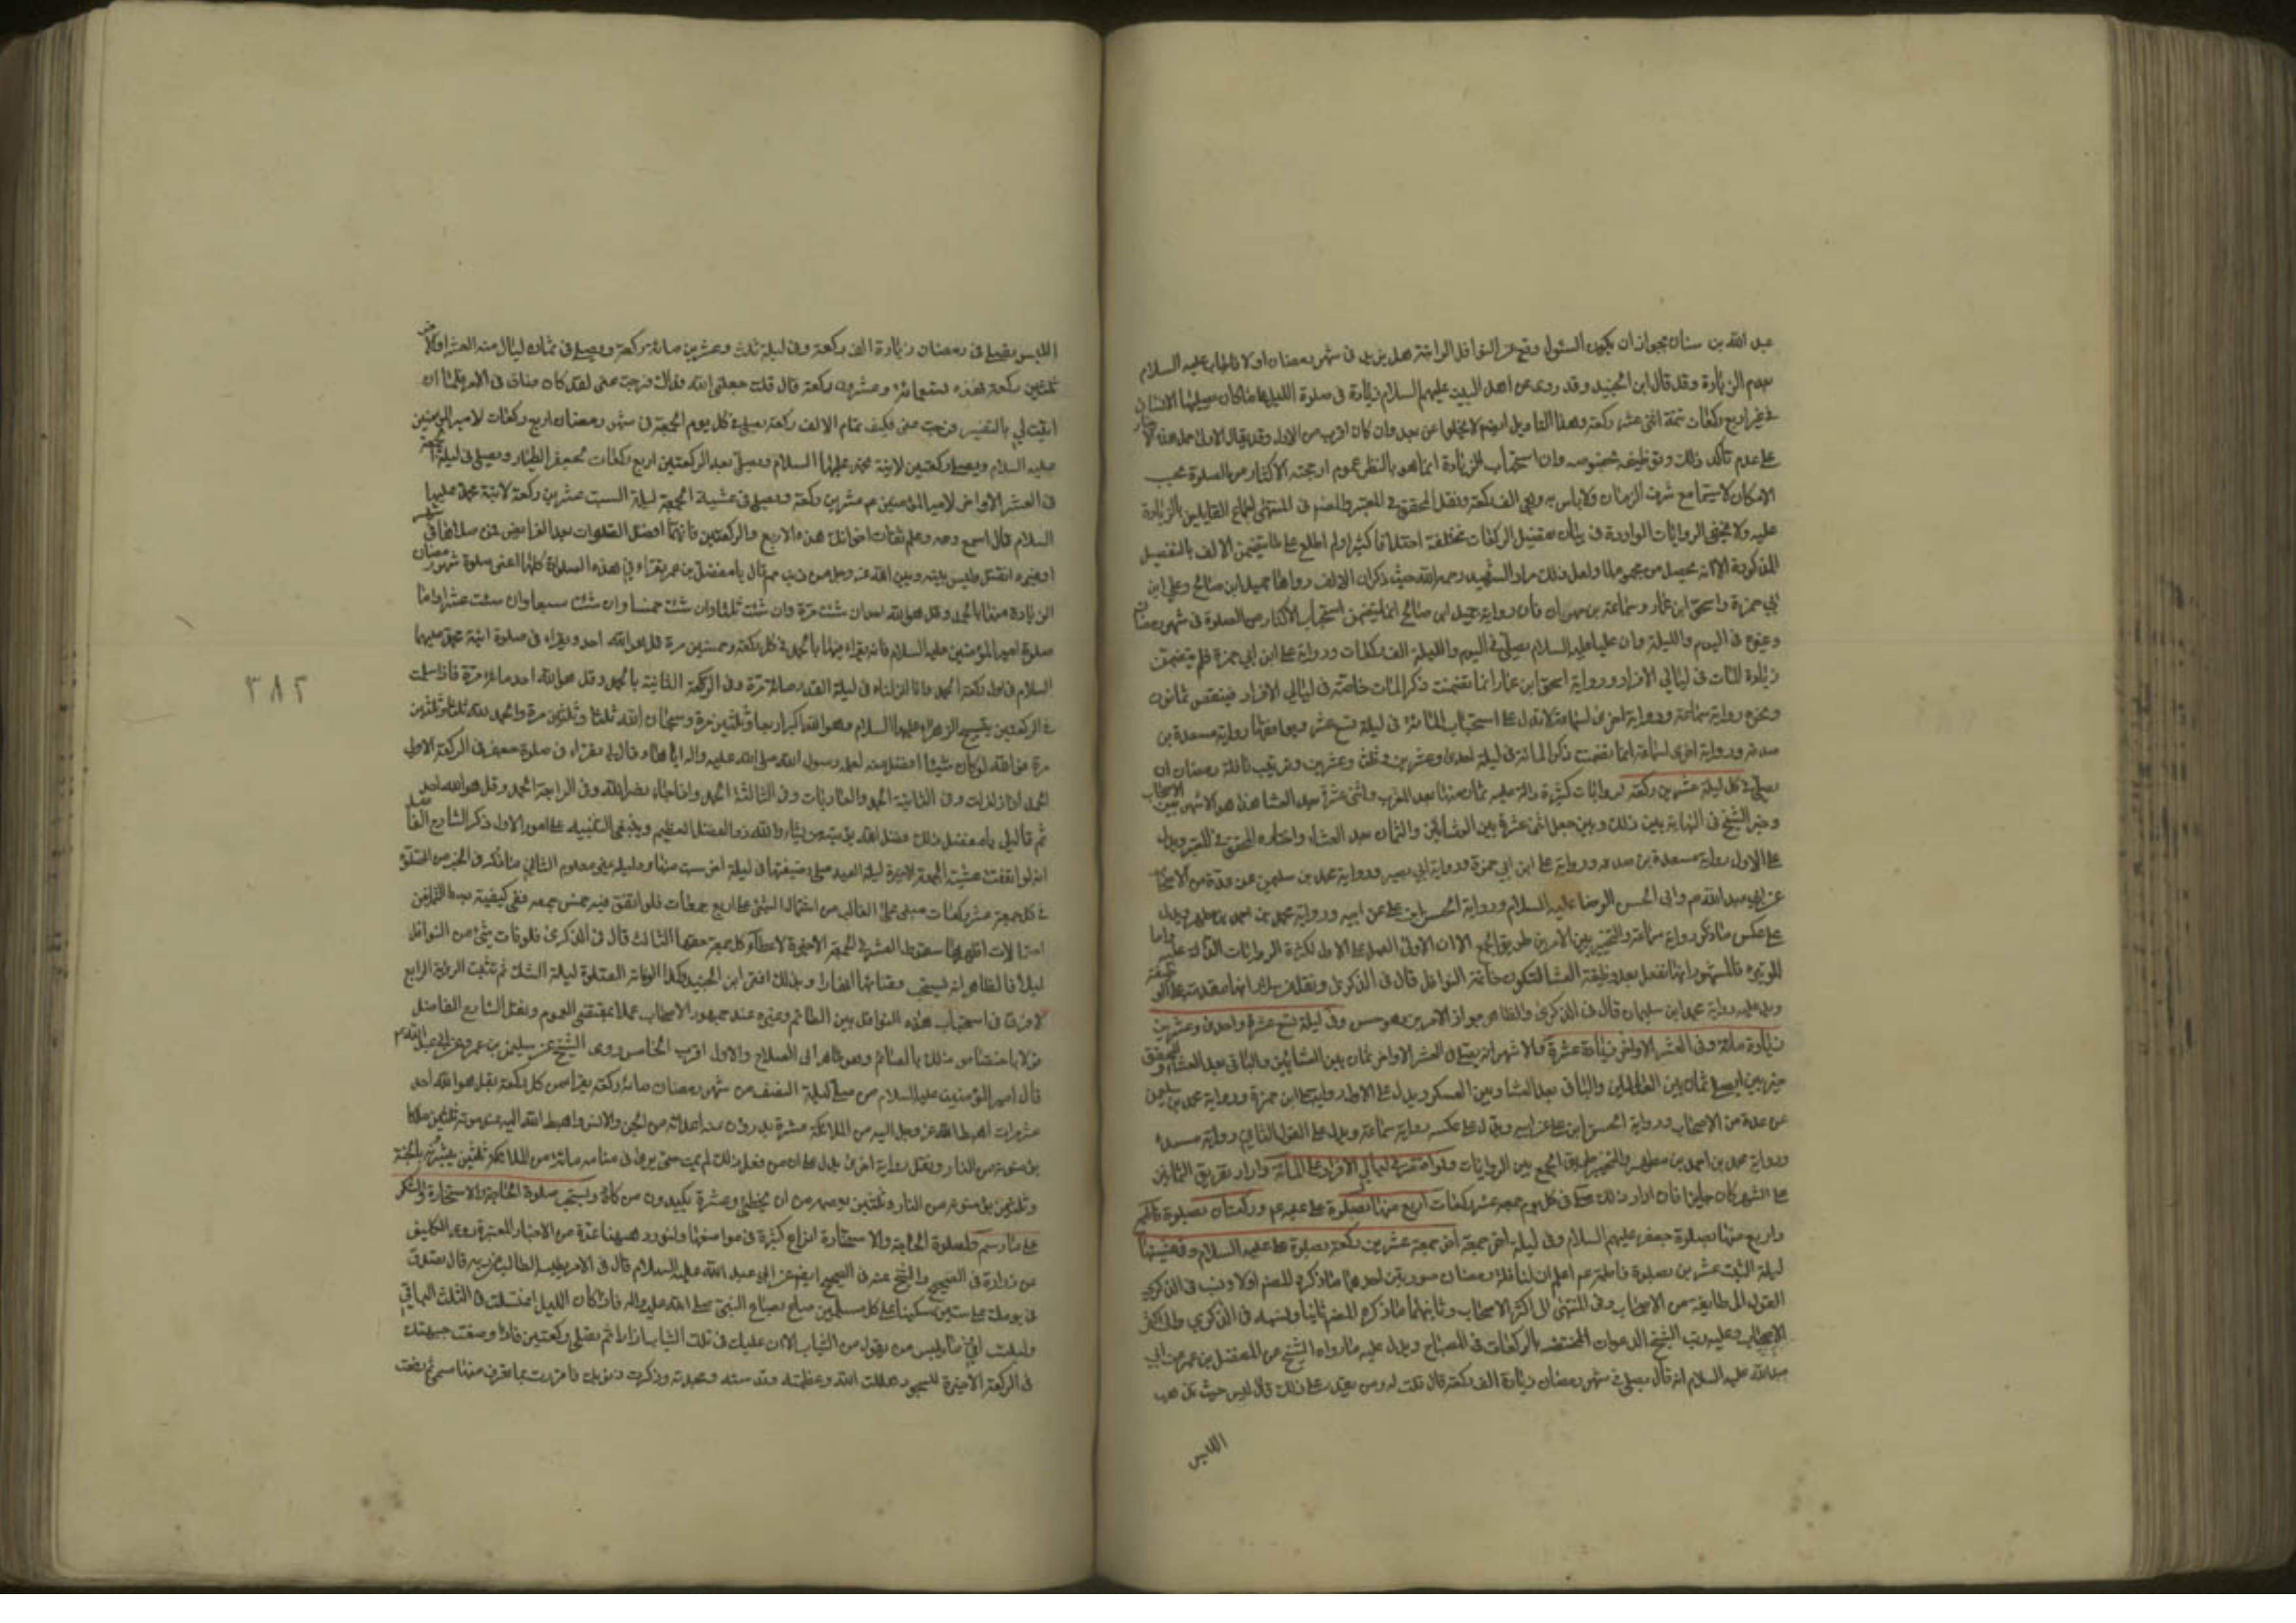 عبد الله بن سنان بجواز ان يكون السئول وقع عن النوافل الراتبة هل يزيد في شهر رمضان اولا فاجاب عليه السلام
بعدم الزيادة وقد قال ابن الجنيد وقد روى عن اهل البيت عليهم السلام زيادة في صلوة الليل على ما كان يصليها الانسان
في غيره اربع ركعات تتمة اثنى عشر ركعة وهذا التاويل ايضا لا يخلوا عن بعد وان كان اقرب من الاول وقد يقال الاولى حمل هذه الاخبار
على عدم تأكد ذلك وتوظيفه بخصوصه وان استحباب الزيادة انما هو بالنظر عموم ارجحية الاكثار من الصلوة بحسب
الامكان لا سيما مع شرف الزمان ولا باس به وهي الف ركعة ونقل المحقق في المعتبر والمصنف في المنتهى اجماع القايلين بالزيادة
عليه ولا يخفى الروايات الواردة في بيان تفصيل الركعات مختلفة اختلافا كثيرا ولم اطلع على ما يتضمن الالف بالتفصيل
المذكورة الا انه يحصل من مجموعها ولعل ذلك مراد الشهيد رحمه الله حيث ذكر ان الالف رواها جميل بن صالح وعلي ابن
ابي حمزة واسحق ابن عمار وسماعة بن مهران فان رواية جميل ابن صالح انما يتضمن استحباب الاكثار من الصلوة في شهر رمضان
وغيره في اليوم والليلة وان عليا عليه السلام يصلي في اليوم والليلة الف ركعات ورواية علي ابن ابي حمزة فلم يتضمن
زيادة المئات في ليالي الافراد ورواية اسحق ابن عمار انما تضمنت ذكر المئات خاصة في ليالي الافراد فينقص ثمانون
ونحوه رواية سماعة ورواية اخرى لسماعة لا تدل على استحباب المائة في ليلة تسع عشر ويوافقها رواية مسعدة بن
صدقة ورواية اخرى لسماعة انما تضمنت ذكر المائة في ليلة احدى وعشرين وثلث وعشرين وترتيب نافلة رمضان ان
يصلي في كل ليلة عشرين ركعة لروايات كثيرة دالة عليه ثمان منها بعد المغرب واثنى عشرة بعد العشا هذا هو الاشهر بين الاصحاب
وخير الشيخ في النهاية بين ذلك وبين جعل اثنى عشرة بين العشائين والثمان بعد العشاء واختاره المحقق في المعتبر ويدل
على الاول رواية مسعدة بن صدقة ورواية علي ابن ابي حمزة ورواية ابي بصير ورواية محمد بن سليمن عن عدة من الاصحاب
عن ابي عبد الله ع وابي الحسن الرضا عليه السلام ورواية الحسن ابن علي عن ابيه ورواية محمد بن احمد بن مطهر ويدل
على عكس ما ذكر رواية سماعة والتخيير بين الامرين طريق الجمع الا ان الاولى العمل على الاول لكثرة الروايات الدالة عليه واما
الوتيرة فالمشهور انها تفعل بعد وظيفة العشا لتكون خاتمة النوافل قال في الذكرى ونقل سلار انها مقدمة على الوظيفة
ويدل عليه رواية محمد ابن سليمان قال في الذكرى والظاهر جواز الامرين وهو حسن وفي ليلة تسع عشرة واحدى وعشرين
زيادة مائة وفي العشر الاواخر زيادة عشرة فالاشهر انه يصلي في العشر الاواخر ثمان بين العشائين والباقي بعد العشاء والمحقق
ورواية محمد بن احمد بن مطهر والتخيير طريق الجمع بين الروايات ولو اقتصر في ليالي الافراد على المائة واراد تفريق الثمانين
على الشهر كان جايزا فان اراد ذلك صلى في كل يوم جمعة عشر ركعات اربع منها بصلوة علي عليه ع وركعتان بصلوة فاطمة
واربع منها بصلوة جعفر عليهم السلام وفي ليلة اخر جمعة عشرين ركعة بصلوة علي عليه السلام وفي عشيتها
ليلة السبت عشرين بصلوة فاطمة ع اعلم ان لنافلة رمضان صورتين احدهما ما ذكره المصنف اولا ونسب في الذكرى
القول الى طايفة من الاصحاب وفي المنتهى الى اكثر الاصحاب وثانيهما ما ذكره المصنف ثانيا ونسبه في الذكرى الى اكثر
الاصحاب وعليه رتب الشيخ الدعوات المختصة بالركعات في المصباح ويدل عليه ما رواه الشيخ عن المفضل بن عمر عن ابي
عبد الله عليه السلام انه قال يصلي في شهر رمضان زيادة الف ركعة قال قلت له ومن يقدر على ذلك قال ليس حيث تذهب
اللیس
اليس يصلي في رمضان زيادة الف ركعة وفي ليلة ثلث وعشرين مائة ركعة ويصلي في ثمان ليال منه العشر الاواخر
ثلثين ركعة فهذه تسعمائة وعشرون ركعة قال قلت جعلني الله فداك فرجت عني لقد كان ضاق في الامر فلما ان
اتيت لي بالتفسير فرجت عني فكيف تمام الالف ركعة يصلي في كل يوم الجمعة في شهر رمضان اربع ركعات لامير المؤمنين
عليه السلام ويصلي ركعتين لابنة محمد عليهما السلام ويصلي بعد الركعتين اربع ركعات لجعفر الطيار ويصلي في ليلة الجمعة
في العشر الاواخر لامير المؤمنين ع عشرين ركعة ويصلي في عشية الجمعة ليلة السبت عشرين ركعة لابنة محمد عليهما
السلام قال اسمع وعه وعلم ثقات اخوانك هذه الاربع والركعتين فانهما افضل الصلوات بعد الفرايض فمن صلاها في شهر رمضان
او غيره انفتل وليس بينه وبين الله عز وجل من ذنب ثم قال يا مفضل بن عمر يقراء في هذه الصلوات كلها اعني صلوة شهر رمضان
الزيادة منها بالحمد وقل هو الله احد ان شئت مرة وان شئت ثلثا وان شئت خمسا وان شئت سبعا وان شئت عشرا واما
صلوة امير المؤمنين عليه السلام فانه يقراء فيها بالحمد في كل ركعة وخمسين مرة قل هو الله احد ويقراء في صلوة ابنة محمد عليهما
السلام في اول ركعة الحمد وانا انزلناه في ليلة القدر مائة مرة وفي الركعة الثانية بالحمد وقل هو الله احد مائة مرة فاذا سلمت
في الركعتين بتسبيح الزهراء عليها السلام وهو الله اكبر اربعا وثلثين مرة وسبحان الله ثلثا وثلثين مرة والحمد لله ثلثا وثلثين
مرة فوالله لو كان شيئا افضل منه لعلمه رسول الله صلى الله عليه واله اياها وقال لي يقراء في صلوة جعفر في الركعة الاولى
الحمد واذا زلزلت وفي الثانية الحمد والعاديات وفي الثالثة الحمد واذا جاء نصر الله وفي الرابعة الحمد وقل هو الله احد
ثم قال لي يا مفضل ذلك فضل الله يؤتيه من يشاء والله ذو الفضل العظيم وينبغي التنبيه على امور الاول ذكر الشارح الفاضل
في كل جمعة عشر ركعات مبني على الغالب من اشتمال الشهر على اربع جمعات فلو اتفق فيه خمس جمعة ففي كيفية بسط الثمانين
احتمالات اظهرها سقوط العشر في الجمعة الاخيرة لاعطاء كل جمعة حقها الثالث قال في الذكرى فلو فات شئ من النوافل
ليلا فالظاهر انه يستحب قضائها نهارا وبذلك افتى ابن الجنيد وكذا لو فاته الصلوة ليلة الشك ثم تثبت الرؤية الرابع
لا فرق في استحباب هذه النوافل بين الصائم وغيره عند جمهور الاصحاب عملا بمقتضى العموم ونقل الشارح الفاضل
قولا باختصاص ذلك بالصائم وهو ظاهر ابي الصلاح والاول اقرب الخامس روى الشيخ عن سليمن بن عمرو عن ابي عبد الله ع
قال امير المؤمنين عليه السلام من صلى ليلة النصف من شهر رمضان مائة ركعة يقراء في كل ركعة بقل هو الله احد
عشر مرات اهبط الله عز وجل اليه من الملائكة عشرة يدرؤن عنه اعدائه من الجن والانس واهبط الله اليه عند موته ثلثين ملكا
يؤمنونه من النار ونقل رواية اخرى يدل على ان من فعل ذلك لم يمت حتى يرى في منامه مائة من الملائكة ثلثين يبشرونه بالجنة
وثلثين يؤمنونه من النار وثلثين يعصمونه من ان يخطئ وعشرة يكيدون من كاده ويستحب صلوة الحاجة والاستخارة والشكر
على ما رسم ولصلوة الحاجة والاستخارة انواع كثيرة في مواضعها ولنورد هيهنا عدة من الاخبار المعتبرة روى الكليني
عن زرارة في الصحيح والشيخ عنه في الصحيح ايضا عن ابي عبد الله عليه السلام قال في الامر يطلبه الطالب من ربه قال تصدق
في يومك على ستين مسكينا على كل مسكين صاع بصاع النبي صلى الله عليه واله فاذا كان الليل اغتسلت في الثلث الباقي
ولبست ادنى ما يلبس من تعول من الثياب الا ان عليك في تلك الثياب ازارا ثم تصلي ركعتين فاذا وضعت جبهتك
في الركعة الاخيرة للسجود هللت الله وعظمته وقدسته ومجدته وذكرت ذنوبك فاقررت بما تعرف منها مسمى ثم رفعت
٣٨٢